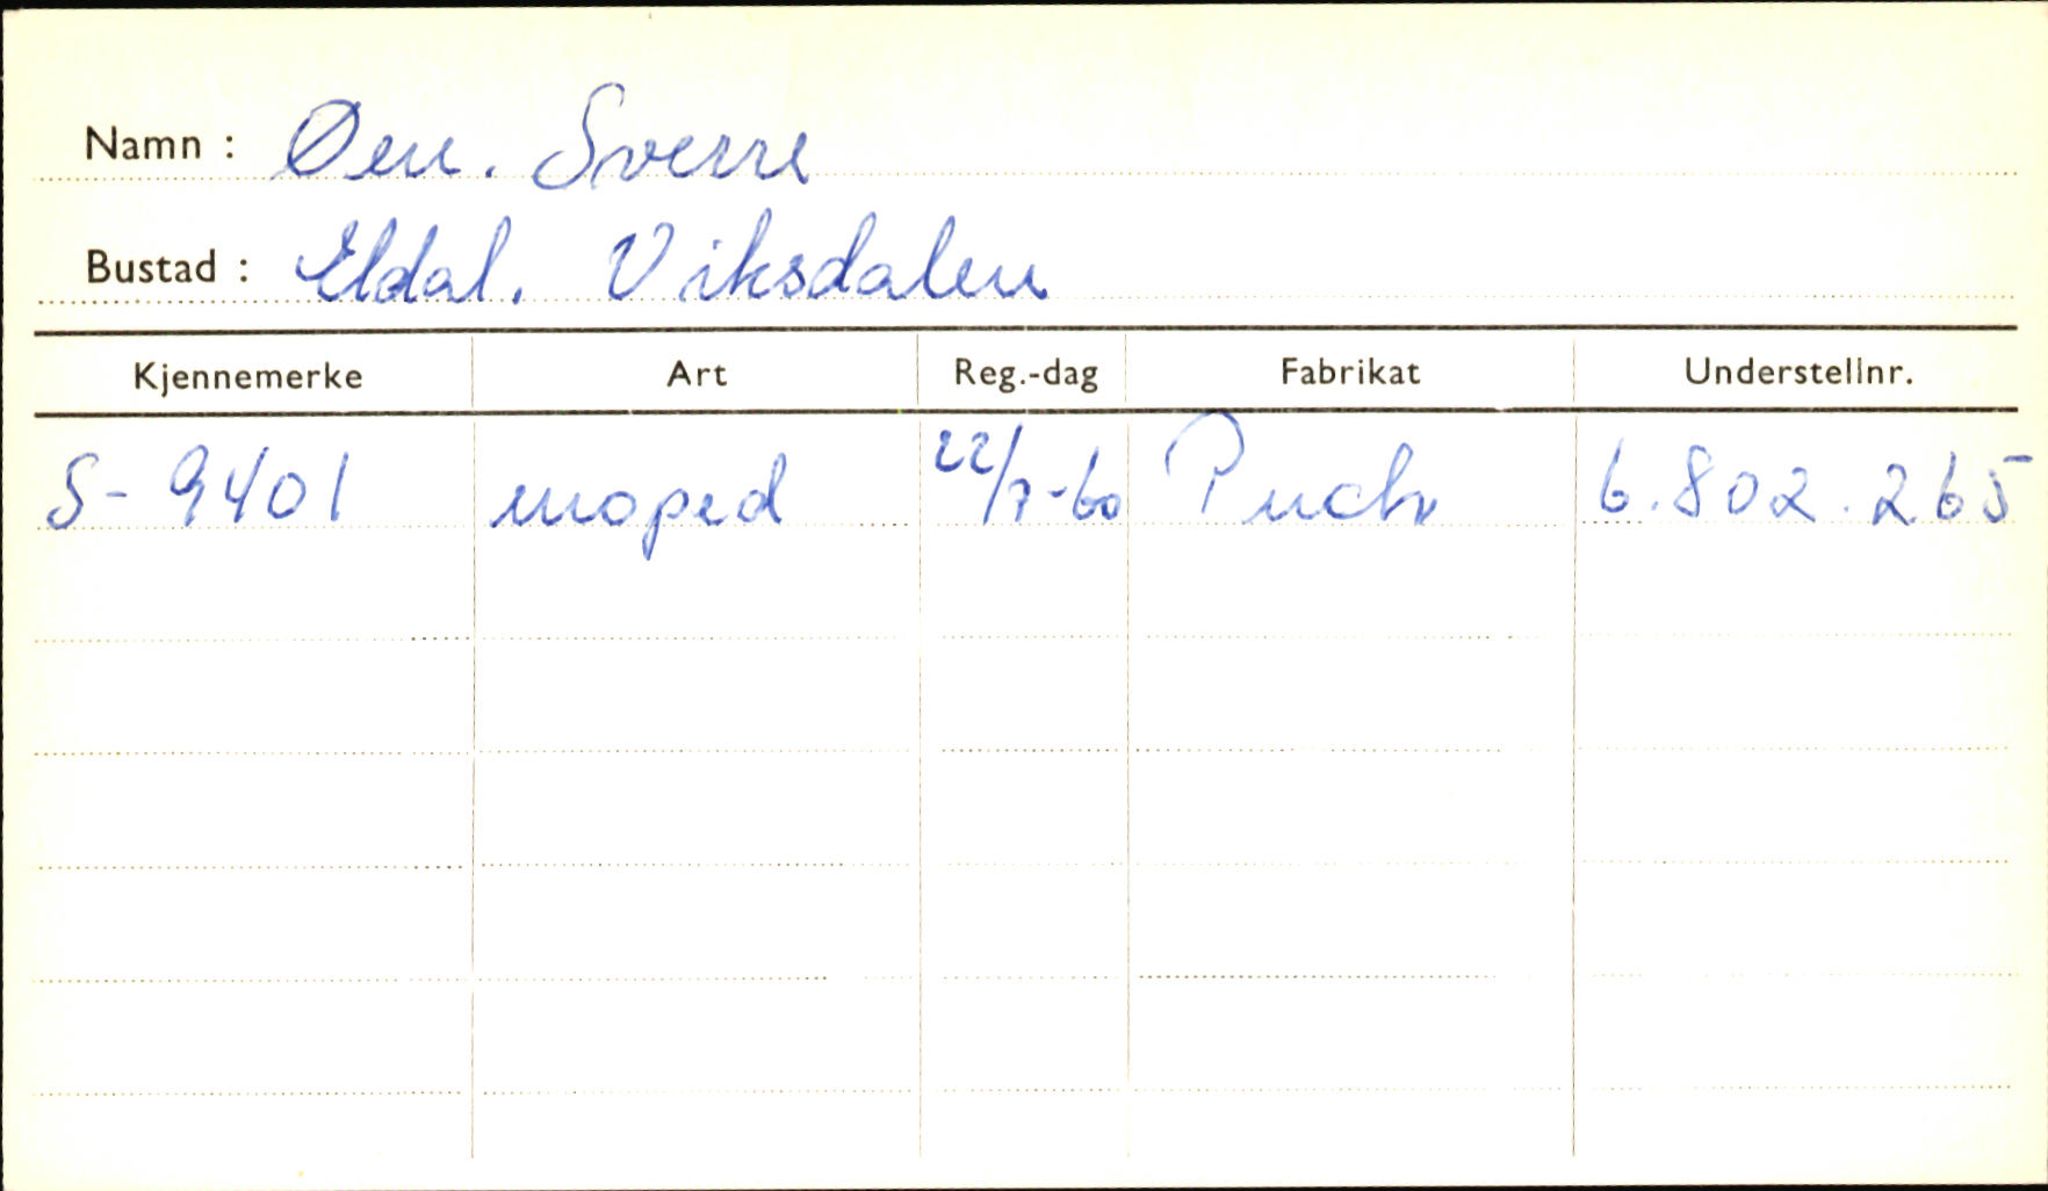 Namn : Øen. Sverre
Bustad : Eldal. Viksdalen
Kjennemerke Art Reg.-dag Fabrikat Understellnr.
S- 9401 moped 22/7-60 Puch 6.802.265